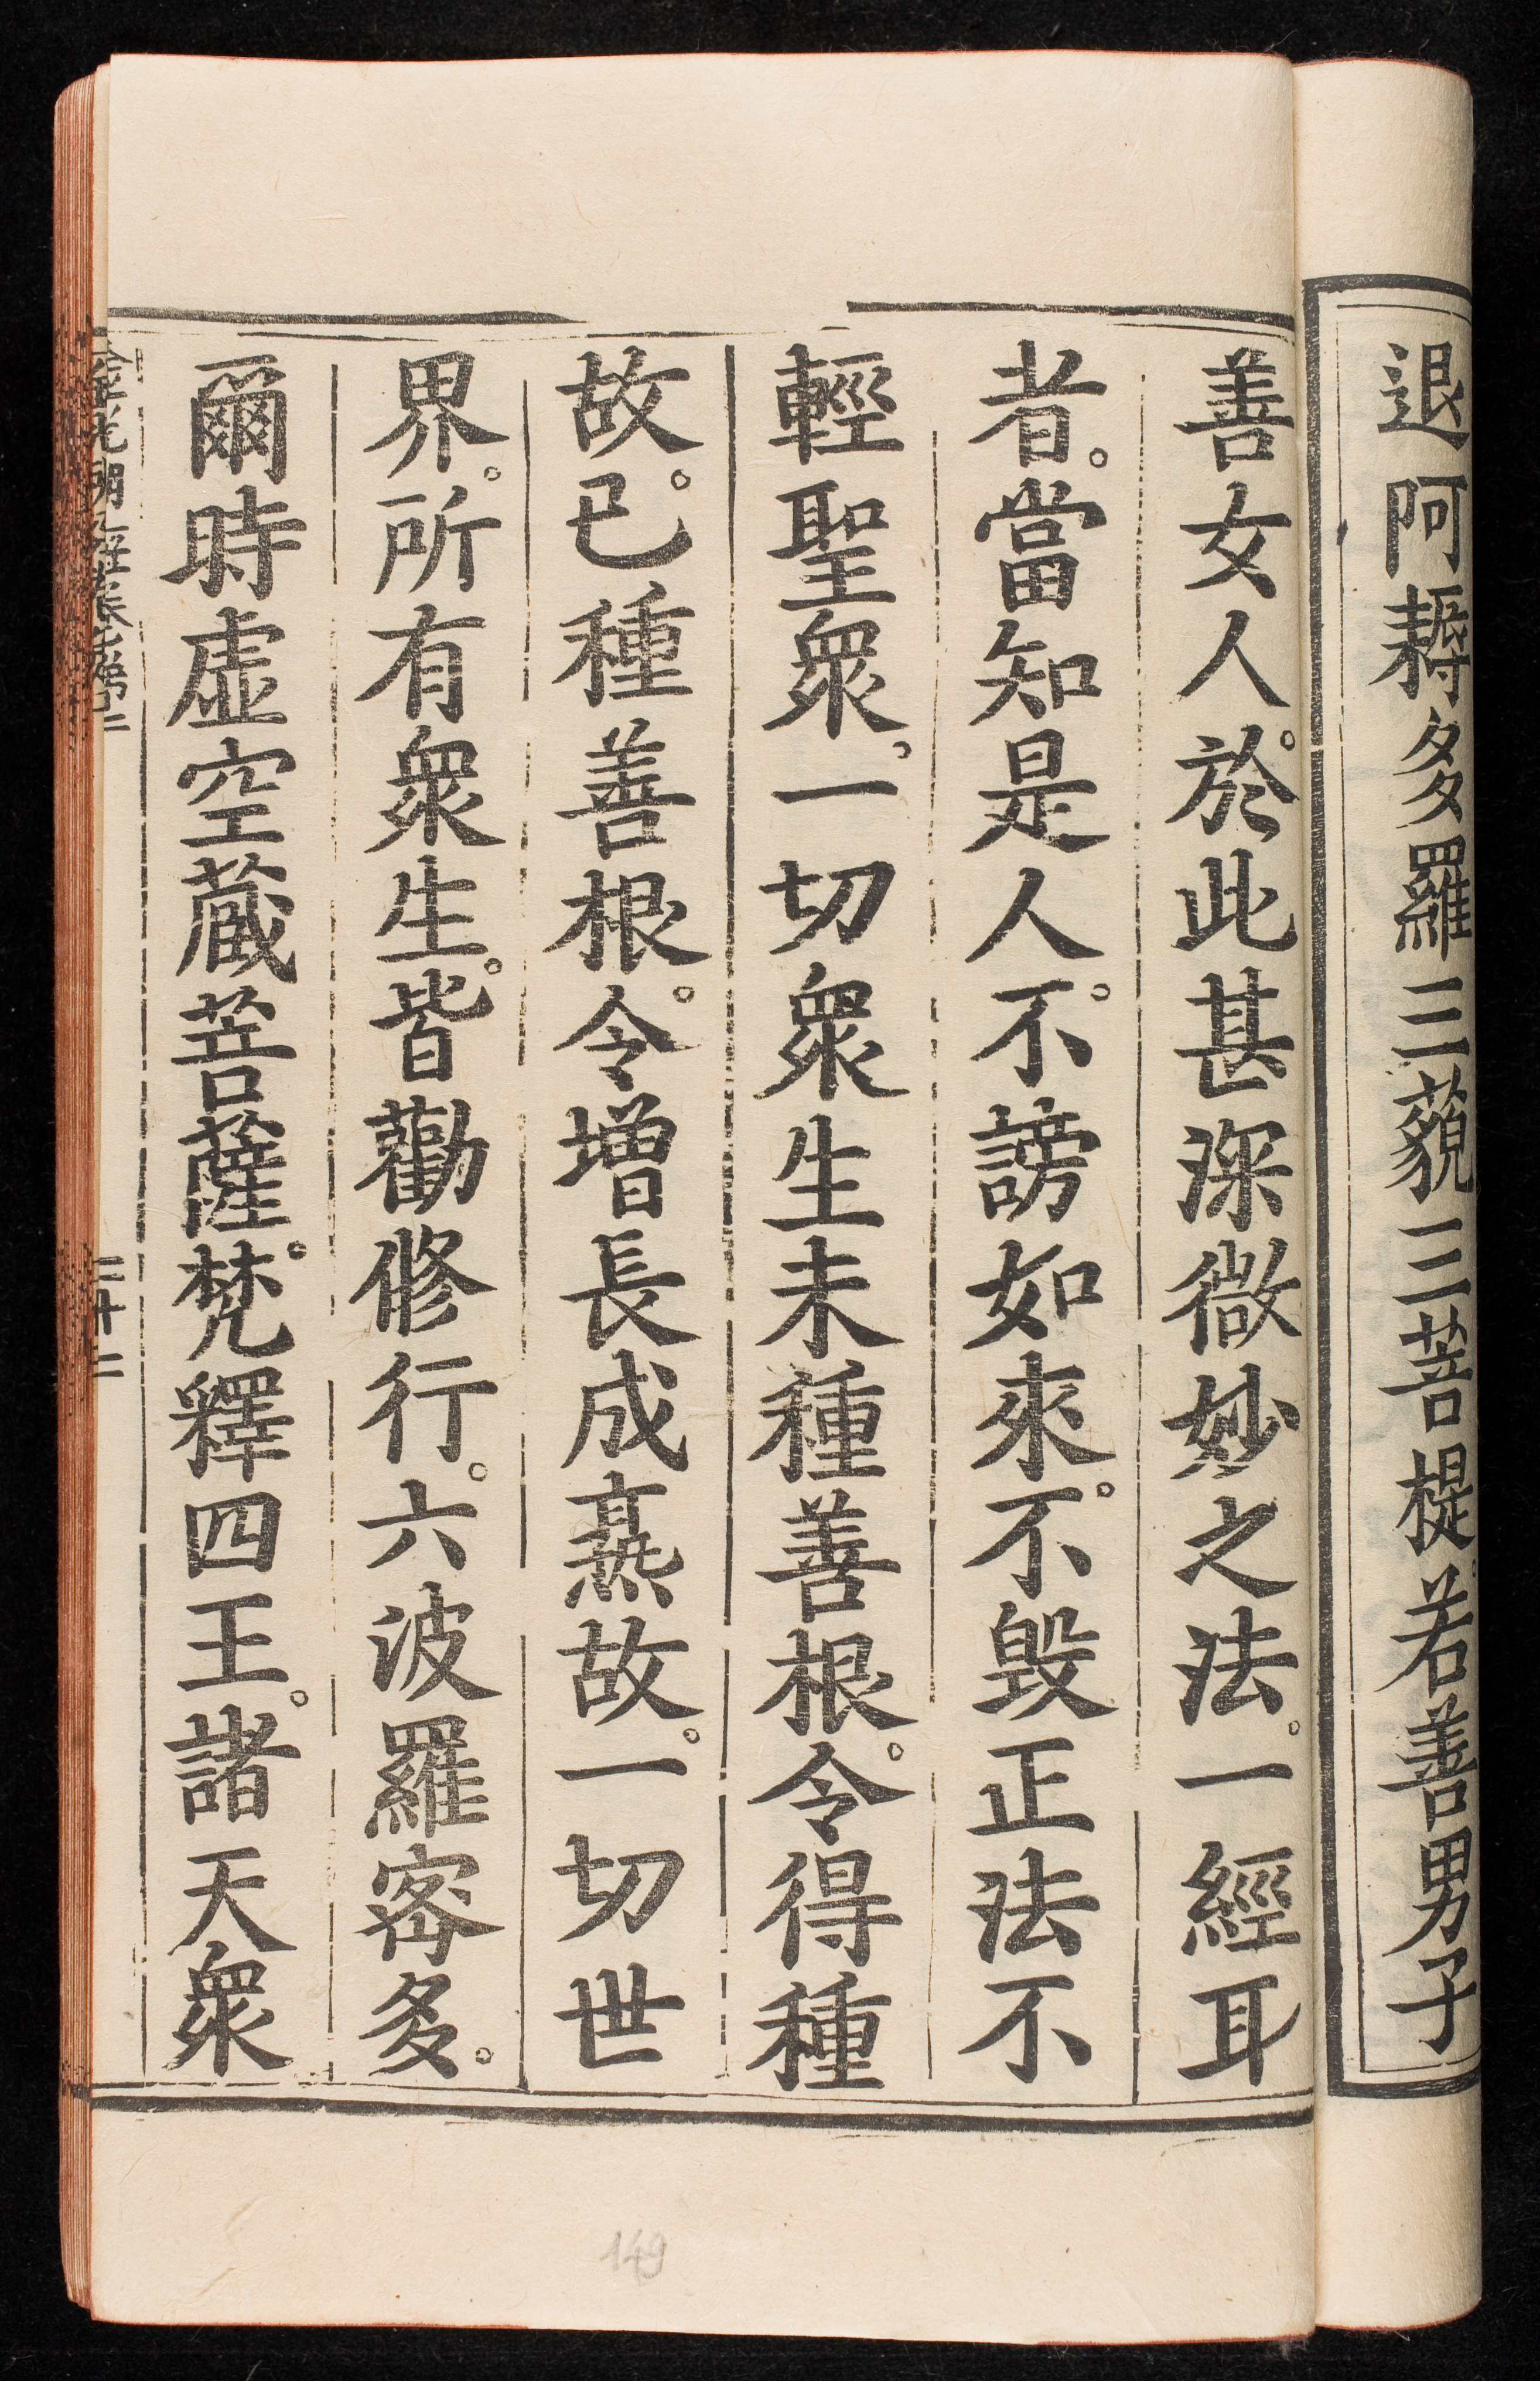 退阿耨多羅三藐三菩提。若善男子
善女人。於此甚深微妙之法。一經耳
者。當知是人。不謗如來。不毀正法不
輕聖眾。一切眾生未種善根。令得種
故。已種善根。令增長成熟故。一切世
界。所有眾生。皆勸修行。六波羅密多。
爾時虛空藏菩薩。梵釋四王。諸天眾
二十二
149